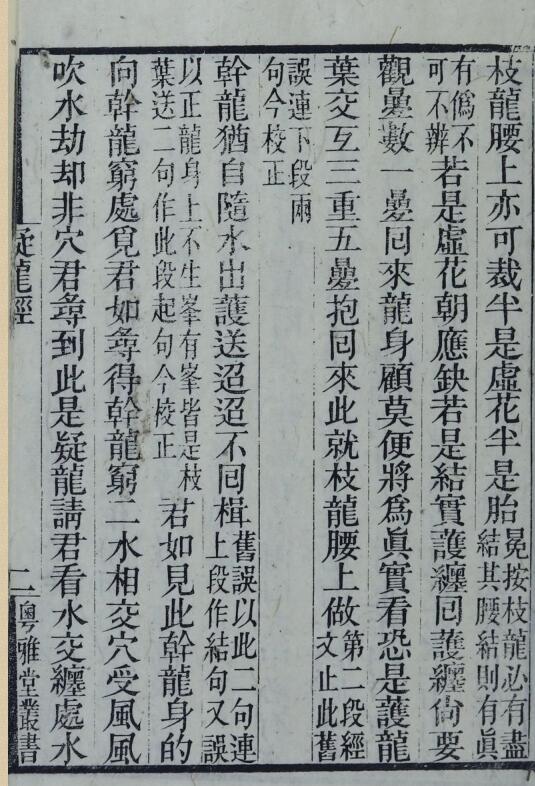 枝龍腰上亦可裁半是虛花半是胎冕按枝龍必有盡結其腰結則有眞
有僞不可不辨若是虛花朝應缺若是結實護纏囘護纏尙要
觀曡數一曡囘來龍身顧莫便將爲眞實看恐是護龍
葉交互三重五曡抱囘來此就枝龍腰上做第二段經文止此舊
誤連下段兩句今校正
幹龍猶自隨水出護送迢迢不囘楫舊誤以此二句連上段作結句又誤
以正龍身上不生峯有峯皆是枝葉送二句作此段起句今校正君如見此幹龍身的
向幹龍窮處覓君如尋得幹龍窮二水相交穴受風風
吹水劫却非穴君尋到此是疑龍請君看水交纏處水
疑龍經
二
粵雅堂叢書